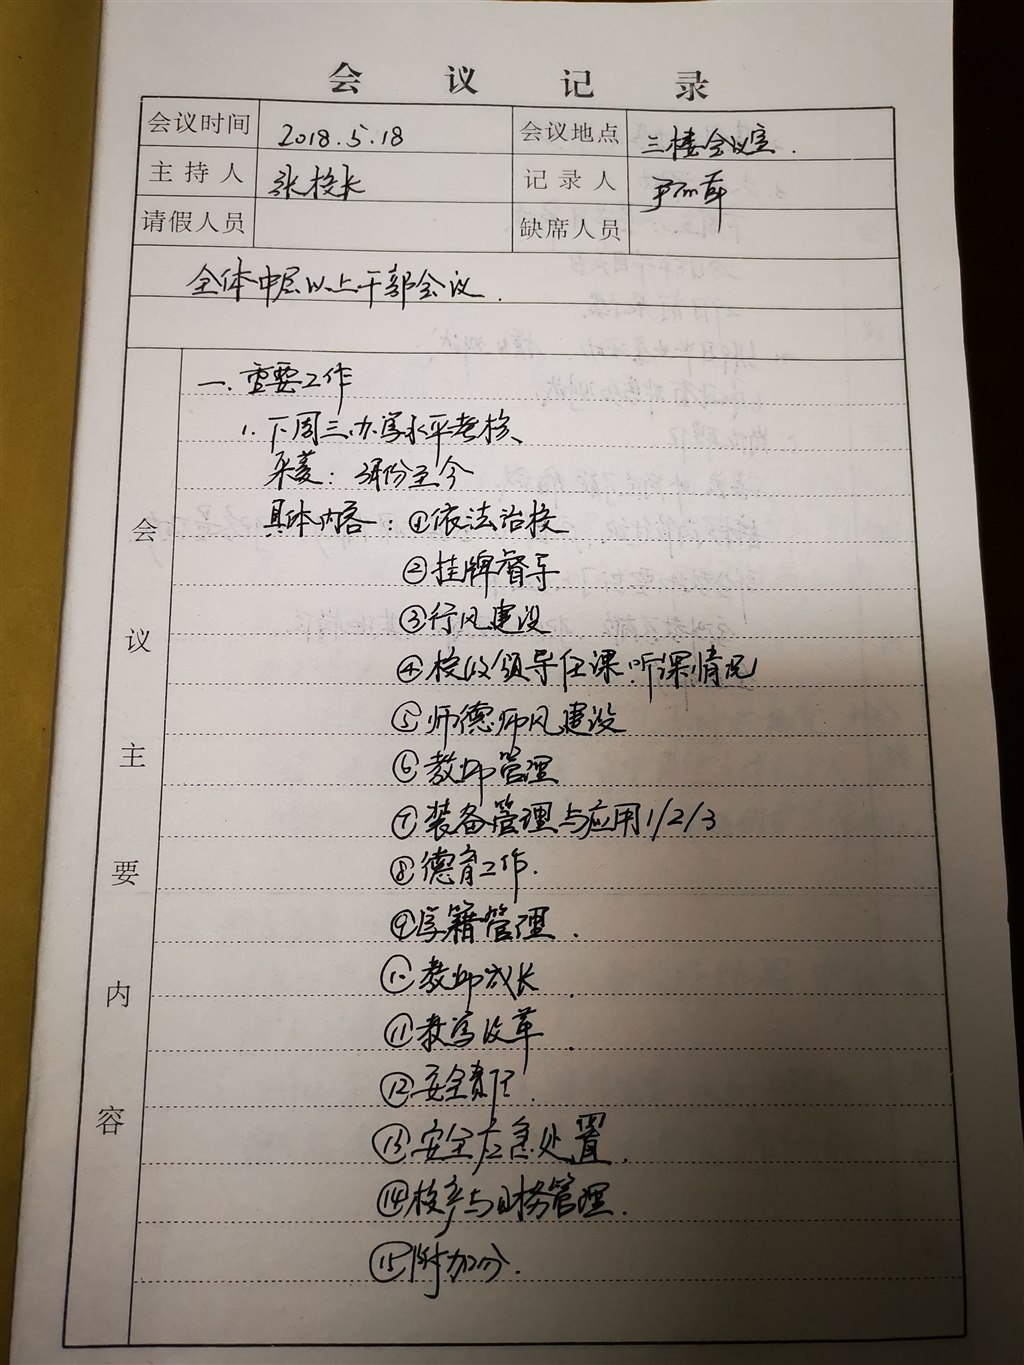 会议记录
会议时间 2018.5.18 会议地点 三楼会议室.
主持人 张校长 记录人
请假人员 缺席人员
全体中层以上干部会议.
会议主要内容
一.重要工作
1.下周三.办学水平考核、
：3月份至今
具体内容：①依法治校
②挂牌督导
③行风建设
④校级领导任课.听课情况
⑤师德师风建设
⑥教师管理
⑦装备管理与应用1/2/3
⑧德育工作.
⑨学籍管理.
⑩教师成长.
⑪教学改革.
⑫安全责任.
⑬安全应急处置.
⑭校产与财务管理.
⑮附加分.